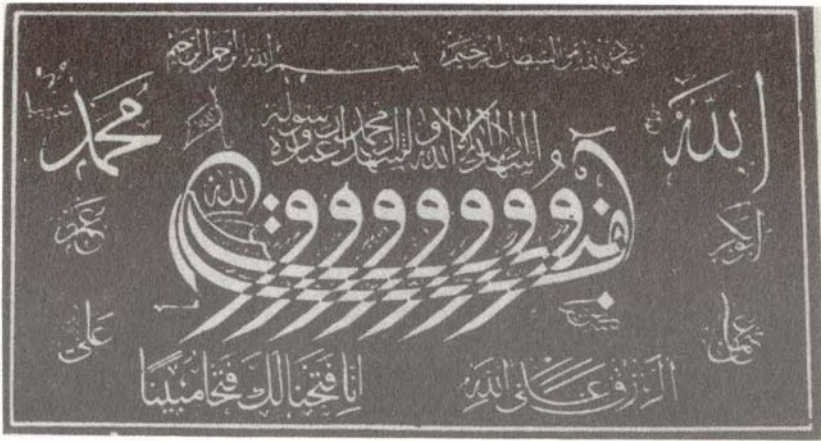 اعوذ بالله من الشيطان الرجيم بسم الله الرحمن الرحيم
الله محمد
اشهد ان لا اله الا الله و اشهد ان محمدا عبده و رسوله
الله
ابوبكر عمر
عثمان علي
الرزق على الله انا فتحنا لك فتحا مبينا